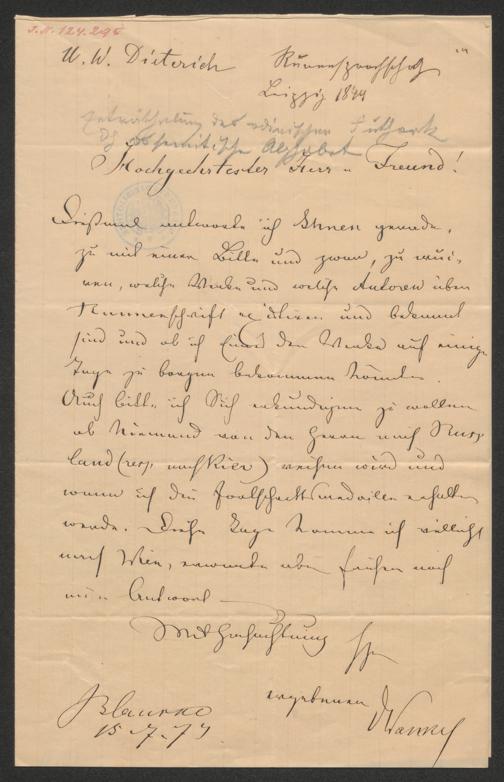 I.N. 124.295
U. W. Dieterich Runensprachschatz
Leipzig 1844
Enträthselung des odinischen Futhark
d. semitische Alphabet
Hochgeehrtester Herr u Freund!
Dießmal antworte ich Ihnen gerade,
zu mit einer Bitte und zwar, zu
welche Werke und welche Autoren über
Runnenschrift existiren und bekannt
sind und ob ich Eines der Werke auf einige
Tage zu borgen bekommen könnte.
Auch bitte ich Sich erkundigen zu wollen
ob Niemand von den Herren nach Russ
land (resp. nach Kiew) reisen wird und
wann ich die medaille erhalten
werde. Diese Tage komme ich vielleicht
nach Wien, erwarte aber früher noch
eine Antwort
Mit Hochachtung Ihr
ergebener DWankel
Blansko
15-7-74